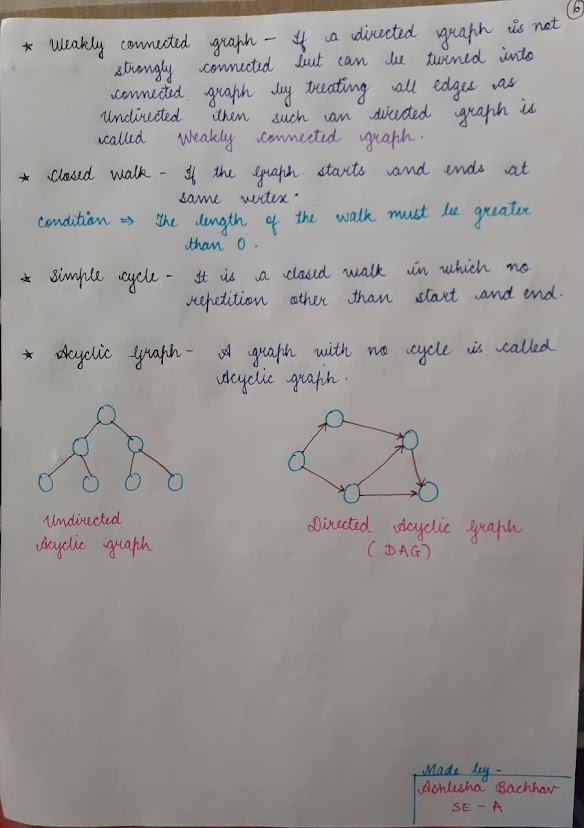 6
* Weakly connected graph - If a directed graph is not
strongly connected but can be turned into
connected graph by treating all edges as
Undirected then such an directed graph is
called Weakly connected graph.
* Closed Walk - If the Graph starts and ends at
same vertex.
Condition ⇒ The length of the walk must be greater
than 0.
* Simple cycle - It is a closed walk in which no
repetition other than start and end.
* Acyclic Graph - A graph with no cycle is called
Acyclic graph.
Undirected
Acyclic graph
Directed Acyclic Graph
(DAG)
Made by -
Ashlesha Bachhav
SE - A